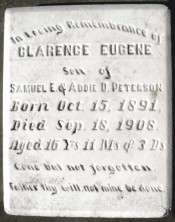 In Loving Remembrance of
CLARENCE EUGENE
Son of
SAMUEL E. & ADDIE D. PETERSON
Born Oct 15, 1891,
Died Sep. 18, 1908.
Aged 16 Yrs 11 Ms & 3 Ds
Gone but not forgotten
Father thy will not mine be done.